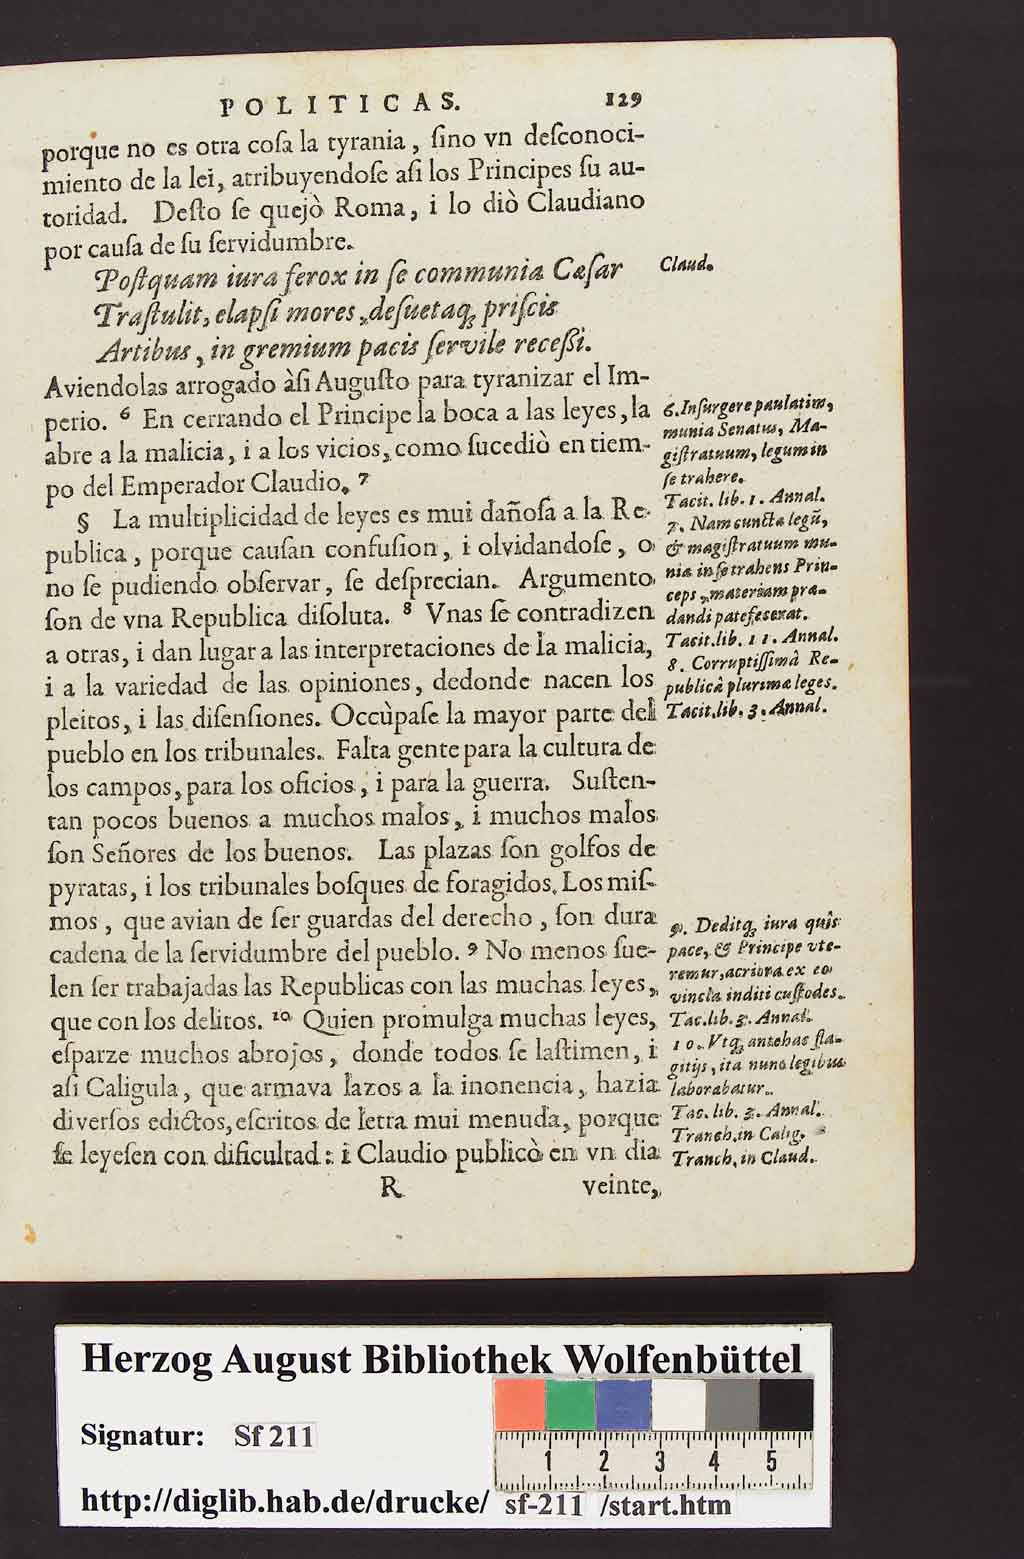 POLITICAS. 129
porque no es otra coſa la tyrania, ſino vn deſconoci-
miento de la lei, atribuyendoſe aſi los Principes ſu au-
toridad. Deſto ſe quejò Roma, i lo diò Claudiano
por cauſa de ſu ſervidumbre.
Poſtquam iura ferox in ſe communia Cæſar
Traſtulit, elapſi mores, deſuetaq; priſcis
Artibus, in gremium pacis ſervile receſſi.
Claud.
Aviendolas arrogado àſi Auguſto para tyranizar el Im-
perio. 6 En cerrando el Principe la boca a las leyes, la
abre a la malicia, i a los vicios, como ſucediò en tiem-
po del Emperador Claudio. 7
§ La multiplicidad de leyes es mui dañoſa a la Re-
publica, porque cauſan confuſion, i olvidandoſe, o
no ſe pudiendo obſervar, ſe deſprecian. Argumento
ſon de vna Republica diſoluta. 8 Vnas ſe contradizen
a otras, i dan lugar a las interpretaciones de la malicia,
i a la variedad de las opiniones, dedonde nacen los
pleitos, i las diſenſiones. Occùpaſe la mayor parte del
pueblo en los tribunales. Falta gente para la cultura de
los campos, para los oficios, i para la guerra. Suſten-
tan pocos buenos a muchos malos, i muchos malos
ſon Señores de los buenos. Las plazas ſon golfos de
pyratas, i los tribunales boſques de foragidos. Los miſ-
mos, que avian de ſer guardas del derecho, ſon dura
cadena de la ſervidumbre del pueblo. 9 No menos ſue-
len ſer trabajadas las Republicas con las muchas leyes,
que con los delitos. 10 Quien promulga muchas leyes,
eſparze muchos abrojos, donde todos ſe laſtimen, i
aſi Caligula, que armava lazos a la inonencia, hazia
diverſos edictos, eſcritos de letra mui menuda, porque
ſe leyeſen con dificultad: i Claudio publicò en vn dia
R veinte,
6. Inſurgere paulatim,
munia Senatus, Ma-
giſtratuum, legum in
ſe trahere.
Tacit. lib. 1. Annal.
7. Nam cuncta legũ,
& magiſtratuum mu-
nia in ſe trahens Prin-
ceps, materiam præ-
dandi patefecerat.
Tacit. lib. 11. Annal.
8. Corruptiſſimâ Re-
publicâ plurimæ leges.
Tacit. lib. 3. Annal.
9. Deditq; iura quîs
pace, & Principe vte-
remur, acriora ex eo
vincla inditi cuſtodes.
Tac. lib. 3. Annal.
10. Vtq; antehac fla-
gitijs, ita nunc legibus
laborabatur.
Tac. lib. 3. Annal.
Tranch. in Calig.
Tranch. in Claud.
Herzog August Bibliothek Wolfenbüttel
Signatur: Sf 211
1 2 3 4 5
http://diglib.hab.de/drucke/ sf-211 /start.htm